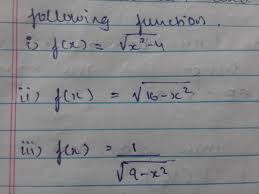 following function.
i) f(x) = √x²-4
ii) f(x) = √16-x²
iii) f(x) = 1/√9-x²